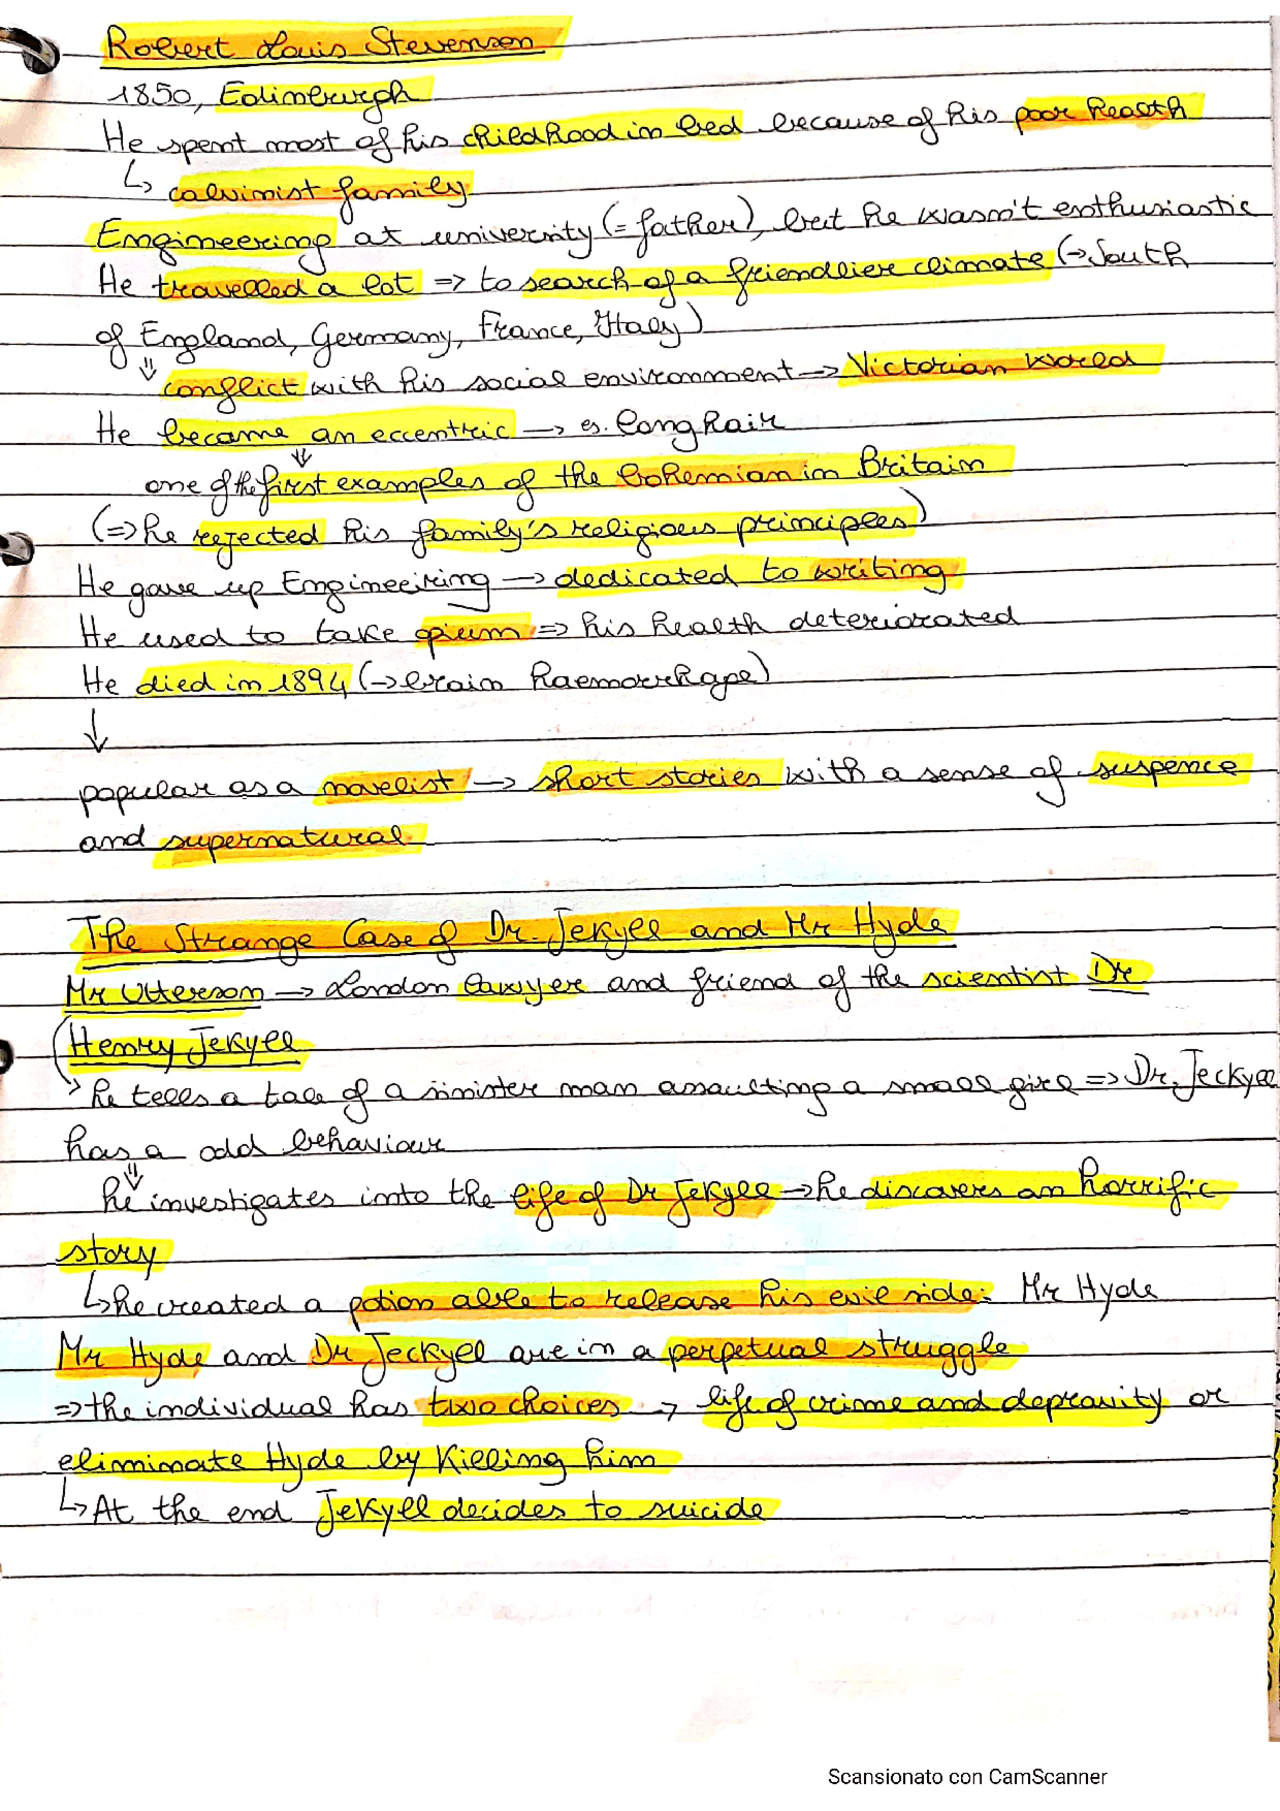 Robert Louis Stevenson
1850, Edimburgh
He spent most of his childhood in bed because of his poor health
↳ calvinist family
Engineering at university (= father), but he wasn't enthusiastic
He travelled a lot ⇒ to search of a friendlier climate (→ South
of England, Germany, France, Italy)
⇓ conflict with his social environment → Victorian World
He became an eccentric → es. long hair
⇓
one of the first examples of the bohemian in Britain
(⇒ he rejected his family's religious principles)
He gave up Engineering → dedicated to writing
He used to take opium ⇒ his health deteriorated
He died in 1894 (→ brain haemorrhage)
↓
popular as a novelist → short stories with a sense of suspence
and supernatural
The Strange Case of Dr. Jekyll and Mr Hyde
Mr Utterson → London lawyer and friend of the scientist Dr
Henry Jekyll
↳ he tells a tale of a sinister man assaulting a small girl ⇒ Dr. Jeckyll
has a odd behaviour
⇓
he investigates into the life of Dr Jekyll → he discovers an horrific
story
↳ he created a potion able to release his evil side: Mr Hyde
Mr Hyde and Dr Jeckyll are in a perpetual struggle
⇒ the individual has two choices → life of crime and depravity or
eliminate Hyde by killing him
↳ At the end Jekyll decides to suicide
Scansionato con CamScanner